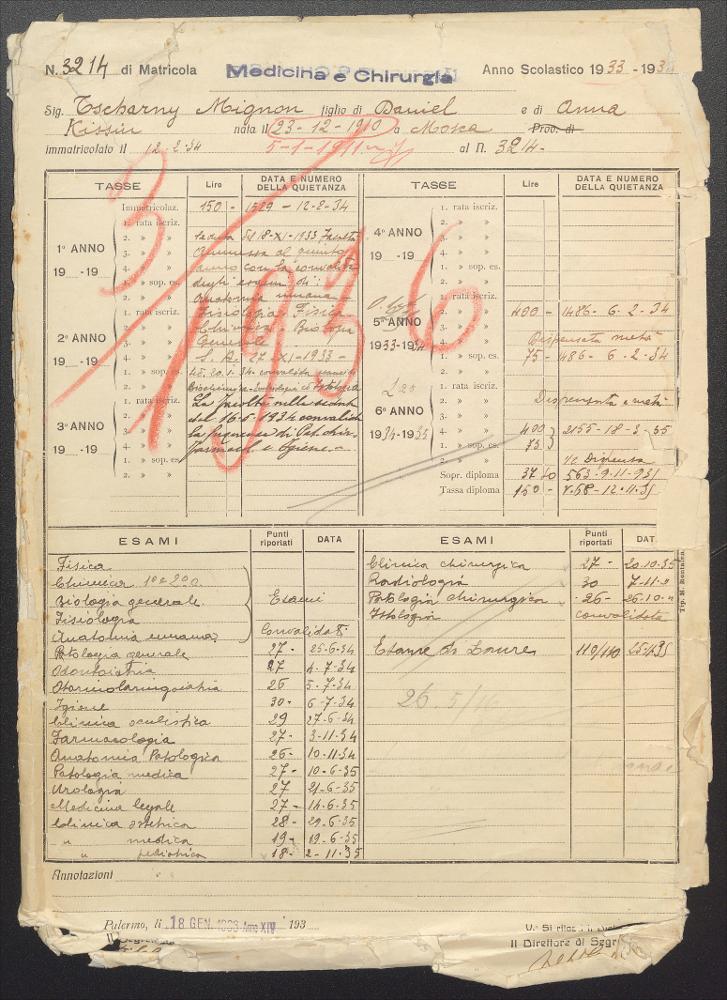 N. 3214 di Matricola Medicina e Chirurgia Anno Scolastico 1933-193
Sig. Tscharny Mignon figlio di Daniel e di Anna
Kissin nata il 23-12-1910 a Mosca Prov. di
immatricolato il 12-2-34 5-1-1911 al N. 3214-
3/1936
TASSE Lire DATA E NUMERO DELLA QUIETANZA
Immatricolaz. 150 - 1529 - 12-2-34
1. rata iscriz. Seduta del 18-XI-1933 Facoltà
2. » » ammessa al quinto
3. » » anno con la convalida
4. » » degli esami di:
1° ANNO
19 -19
1. » sop. es. Anatomia umana -
1. rata iscriz. Fisiologia - Fisica
2. » » Chimica - Biologia
3. » » Generale
4. » » S. A. 27-XI-1933 -
2° ANNO
19 -19
1. » sop. es.
1. rata iscriz. La facoltà nella seduta
2. » » del 16-5-1934 convalida
3. » » la frequenza di Pat. chir.
4. » » Farmacol. e Igiene. -
3° ANNO
19 -19
1. » sop. es.
TASSE Lire DATA E NUMERO DELLA QUIETANZA
1. rata iscriz.
2. » »
3. » »
4. » »
4° ANNO
19 -19
1. » sop. es.
1. rata iscriz. 400 - 1486 - 6-2-34
2. » »
3. » » Dispensata metà
4. » sop. es. 75 - 486 - 6-2-34
5° ANNO
1933-1934
1. rata iscriz. Dispensata metà
2. » »
3. » » 400 2155-18-3-35
4. » » 75
6° ANNO
1934-1935
1. » sop. es. Dispensa
Sopr. diploma 37 50 563-9-11-935
Tassa diploma 150 - 12-11-35
ESAMI Punti riportati DATA
Fisica
Chimica 1° e 2°
Biologia generale Esami
Fisiologia
Anatomia umana Convalidati
Patologia generale 27 - 25-6-34
Odontoiatria 27 4-7-34
Otorinolaringoiatria 26 5-7-34
Igiene 30 - 6-7-34
Clinica oculistica 29 27-6-34
Farmacologia 27 - 3-11-34
Anatomia Patologica 26 - 10-11-34
Patologia medica 27 - 10-6-35
Urologia 27 21-6-35
Medicina legale 27 - 14-6-35
Clinica ostetrica 28 - 29-6-35
" medica 19 - 19-6-35
" pediatrica 18 - 2-11-35
ESAMI Punti riportati DAT
Clinica chirurgica 27 - 20-10-35
Radiologia 30 7-11-"
Patologia chirurgica 26 - 26-10-"
Istologia convalidata
Esame di Laurea 110/110
26.5/10
Annotazioni
Palermo, li 18 GEN. 1936 Anno XIV 193
Il Direttore di Segr